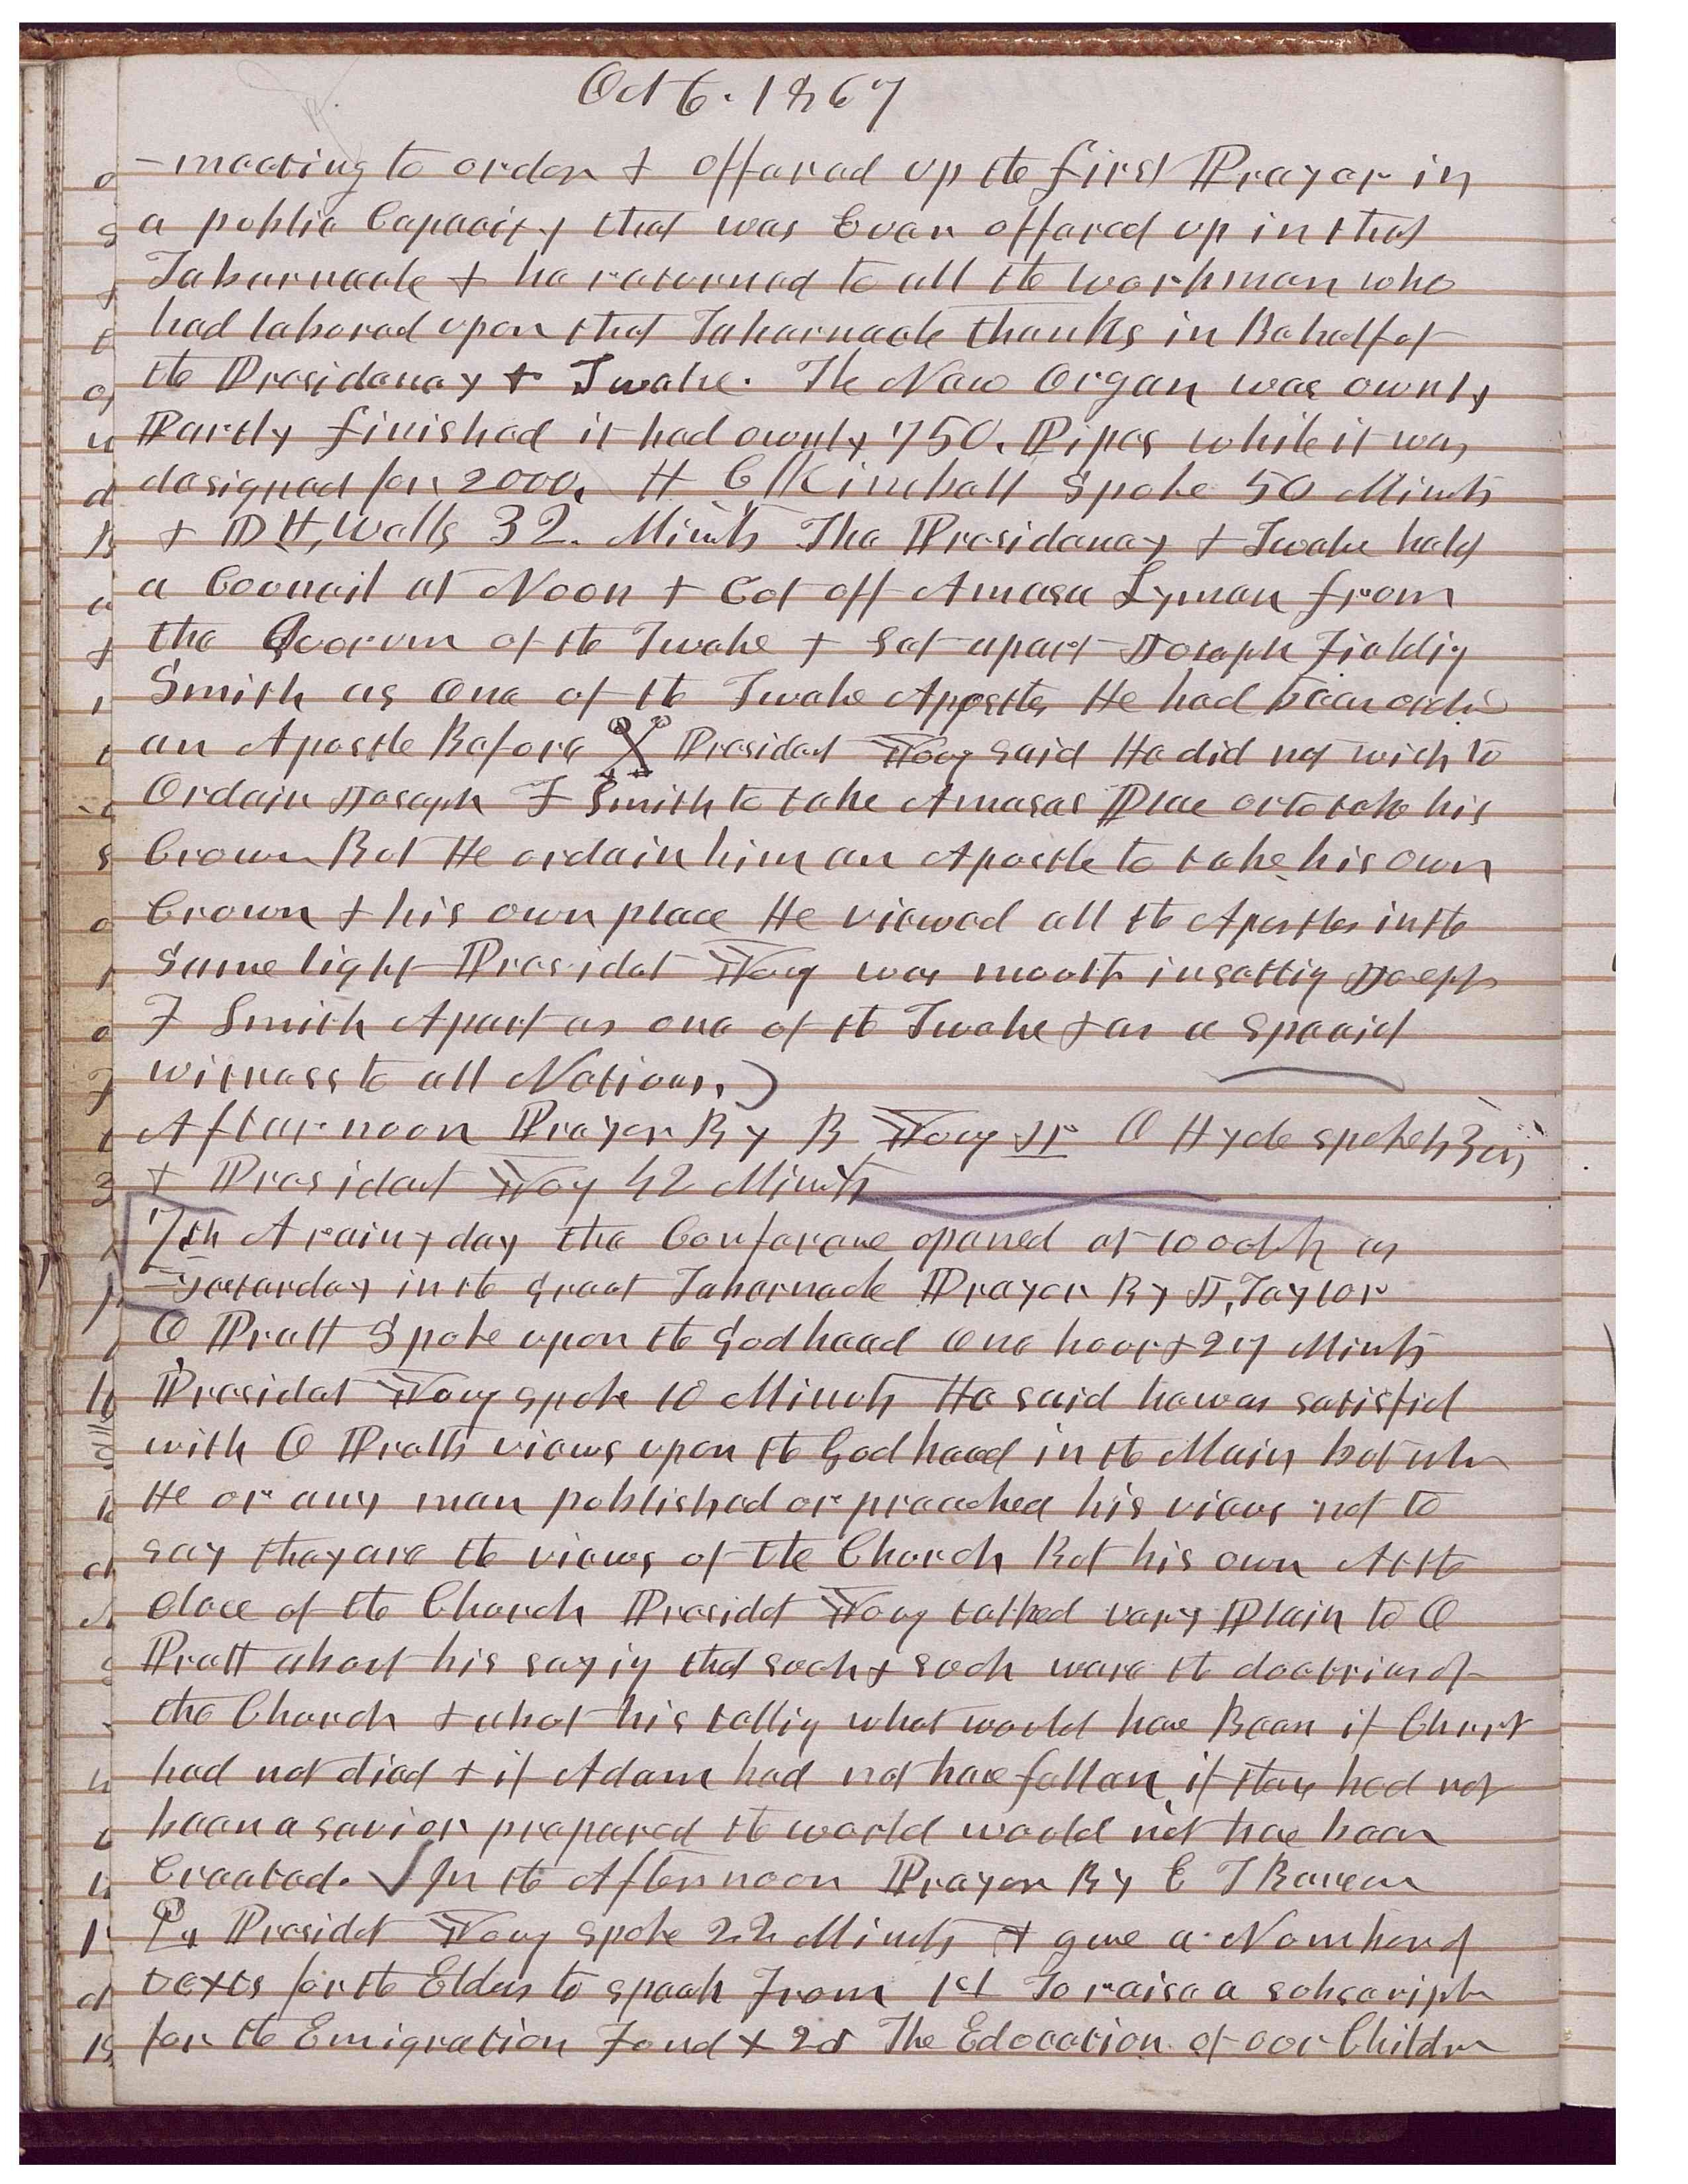 Oct 6. 1867
-meeting to order & offered up the first Prayer in
a public Capacity that was Ever offered up in that
Tabernacle & he returned to all the workmen who
had labored upon that Tabernacle thanks in Behalf of
the Presidency & Twelve. The New Organ was ownly
Partly finished it had ownly 750. Pipes while it was
designed for 2000. H C Kimball Spoke 50 Minuts
& D H, Wells 32. Minuts The Presidency & Twelve held
a Council at Noon & Cut off Amasa Lyman from
the Quorum of the Twelve & Set apart Joseph Fieldig
Smith as One of the Twelve Apostles He had been ordind
an Apostle Before President Young said He did not wish to
Ordain Joseph F Smith to take Amasas Place or to take his
Crown But He ordain him an Apostle to take his own
Crown & his own place He viewed all the Apostles in the
Same light President Young was mouth in settig Joseph
F Smith Apart as one of the Twelve & as a Special
witness to all Nations.
Afternoon Prayer By B Young Jr O Hyde spoke
& President Young 42 Minuts
7th A rainy day the Conference opened at 10 oclk as
yesterday in the great Tabernacle Prayer By J, Taylor
O Pratt Spoke upon the Godhead One hour & 27 Minuts
President Young spoke 10 Minuts He said he was satisfid
with O Pratts views upon the Godhead in the Main but when
He or any man published or preached his views not to
say they are the views of the Church But his own At the
close of the Church Presidet Young talked very Plain to O
Pratt about his sayig that such & such were the doctrins of
the Church & about his tellig what would have Been if Christ
had not died & if Adam had not have fallen, if there had not
been a savior prepared the world would not have been
Created. In the Afternoon Prayer By E T Benson
Presidet Young Spoke 22 Minuts & gave a Number of
texts for the Elders to speak From 1st To raise a subscriptn
for the Emigration Fund & 2d The Education of our Childrn